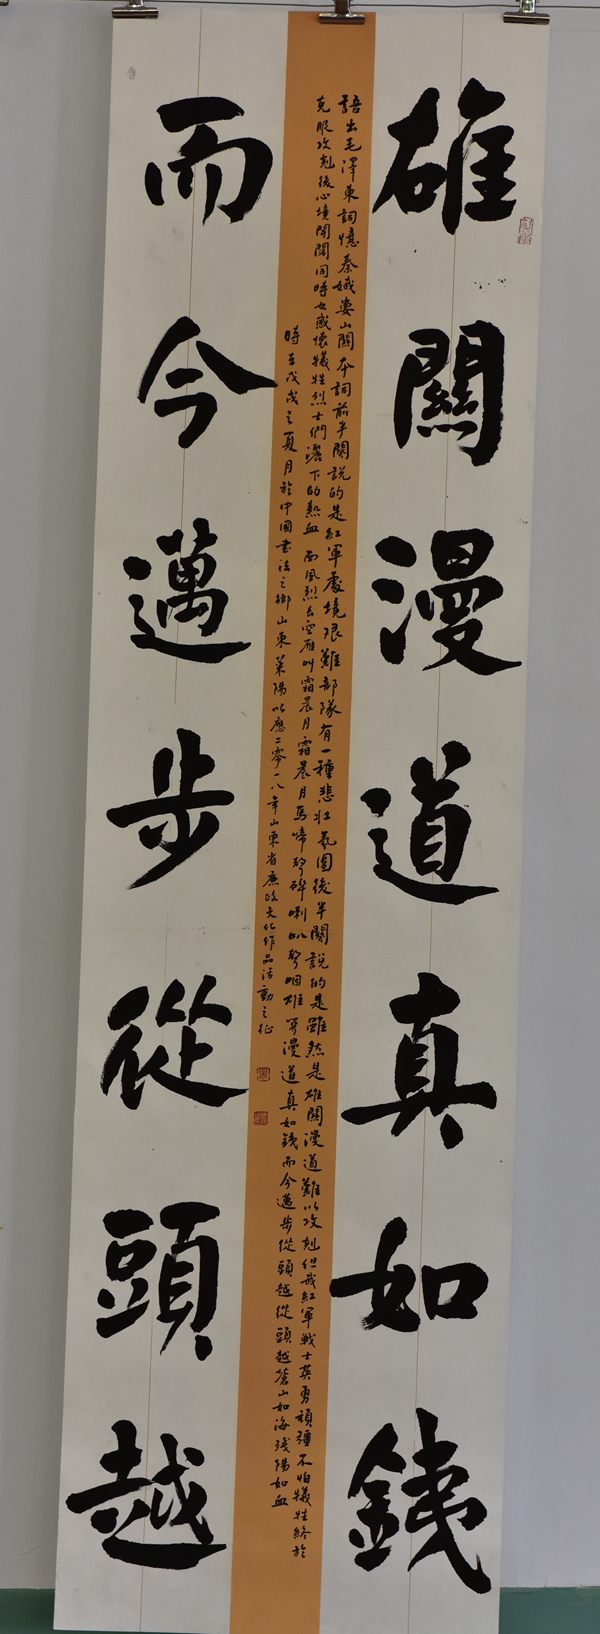 雄關漫道真如銕
語出毛澤東詞憶秦娥婁山關本詞前半闋說的是紅軍處境艰難部隊有一種悲壯氛圍後半闋說的是雖然是雄關漫道難以攻剋但我紅軍戰士英勇頑彊不怕犧牲終於
克服攻剋後心境開闊同時也感懷犧牲烈士們灑下的熱血西風烈長空雁叫霜晨月霜晨月馬啼聲碎喇叭聲咽雄關漫道真如銕而今邁步從頭越從頭越蒼山如海殘陽如血
時在戊戌之夏月於中國書法之鄉山東萊陽以應二零一八年山東省廉政文化作品活動之征
而今邁步從頭越